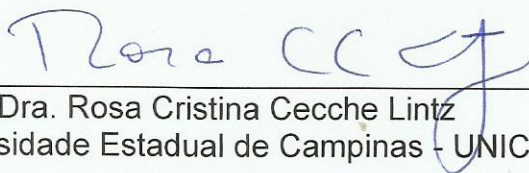 Rosa CC
Dra. Rosa Cristina Cecche Lintz
sidade Estadual de Campinas - UNIC